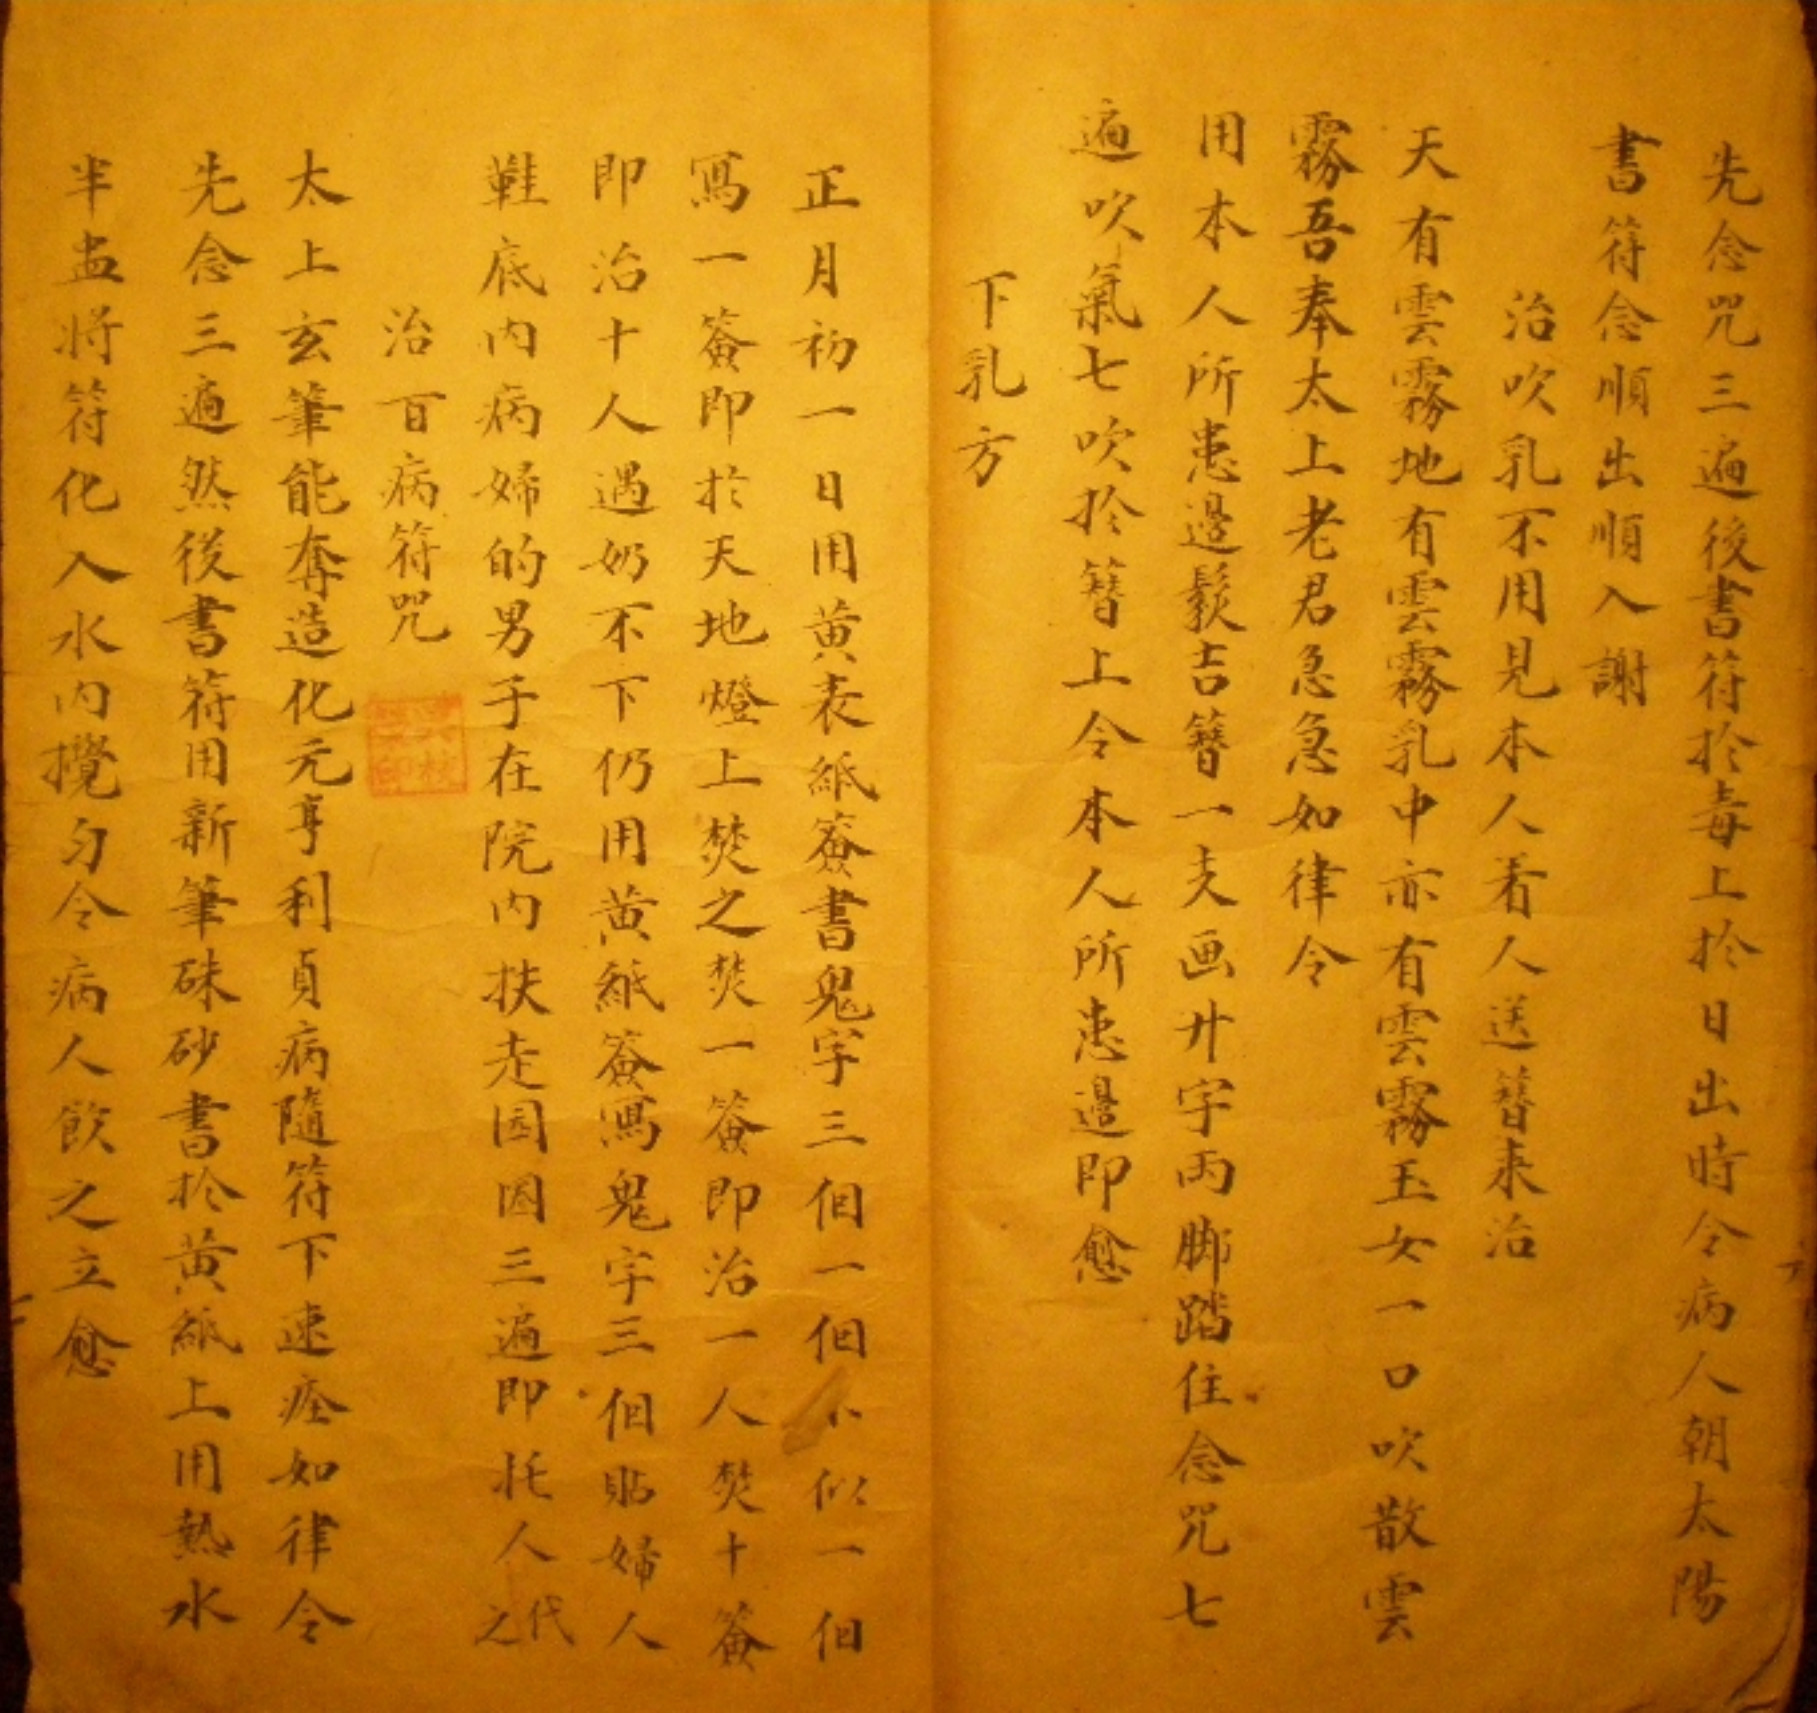 先念咒三遍後書符於毒上於日出時令病人朝太陽
書符念順出順入謝
治吹乳不用見本人看人送簪来治
天有雲霧地有雲霧乳中亦有雲霧玉女一口吹散雲
霧吾奉太上老君急急如律令
用本人所患邊鬂吉簪一支画廾字両脚踏住念咒七
遍吹氣七吹於簪上令本人所患邊即愈
下乳方
正月初一日用黄表紙簽書鬼字三個一個不似一個
寫一簽即於天地燈上焚之焚一簽即治一人焚十簽
即治十人遇奶不下仍用黄紙簽寫鬼字三個貼婦人
鞋底内病婦的男手在院内扶走园圈三遍即托人代之
治百病符咒
太上玄筆能奪造化元亨利貞病隨符下速痊如律令
先念三遍然後書符用新筆硃砂書於黄紙上用熱水
半盅将符化入水内攪匀令病人飲之立愈